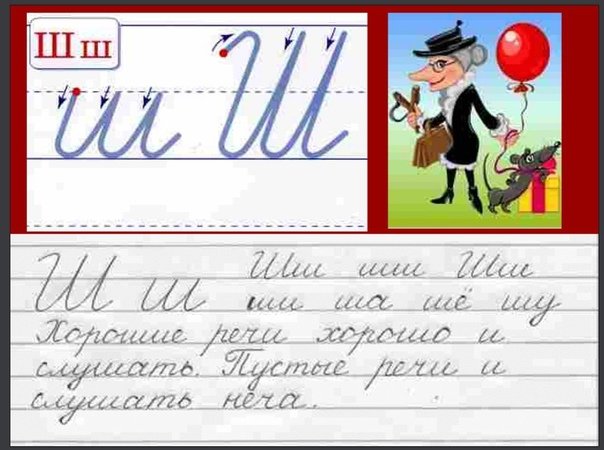 Ш ш
ш Ш
Ш ш Шш шш Шш
ши ша шё шу
Хорошие речи хорошо и
слушать. Пустые речи и
слушать неча.